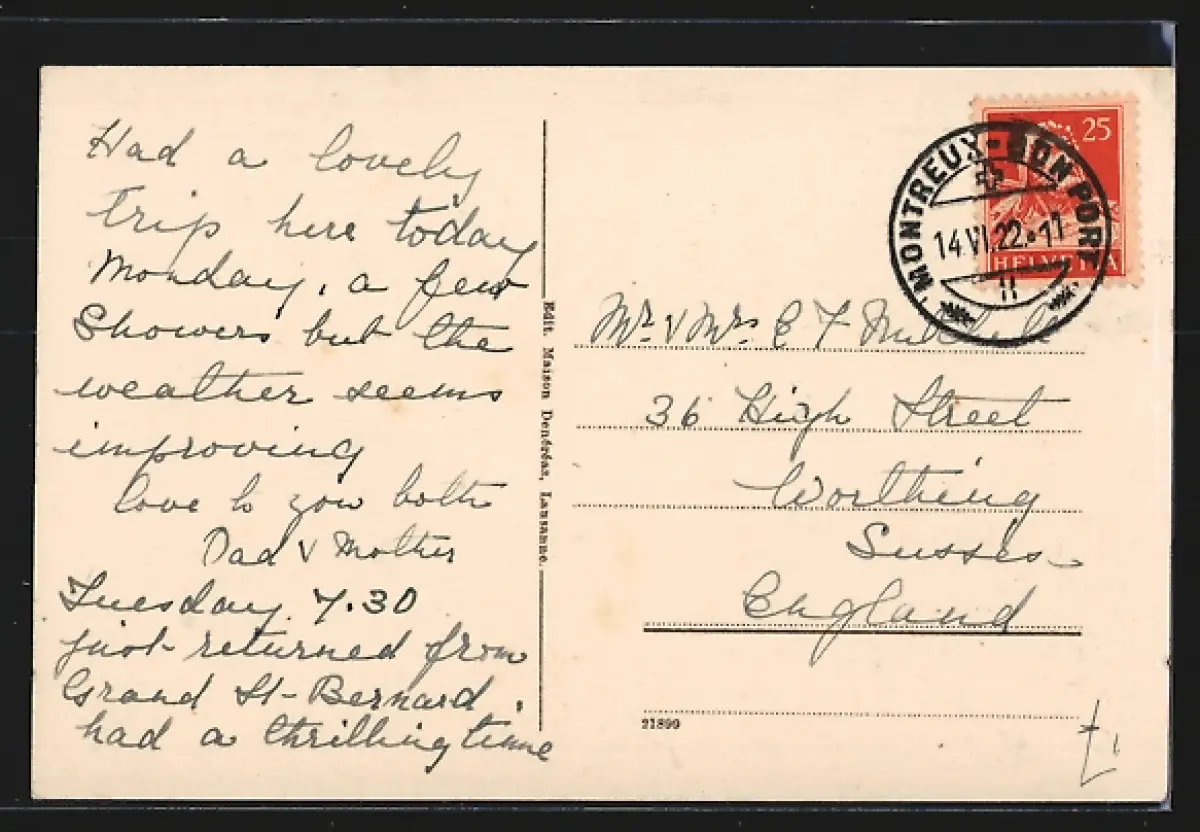 Had a lovely
trip here today
Monday, a few
Showers but the
weather seems
improving
love to you both
Dad & Mother
Tuesday 7.30
just returned from
Grand St-Bernard,
had a thrilling time
Edit. Maison Denéréaz, Lausanne.
25
HELVETIA
MONTREUX-BON PORT
14.VI.22.-11
II
Mr & Mrs C F
36 High Street
Worthing
Sussex
England
21899